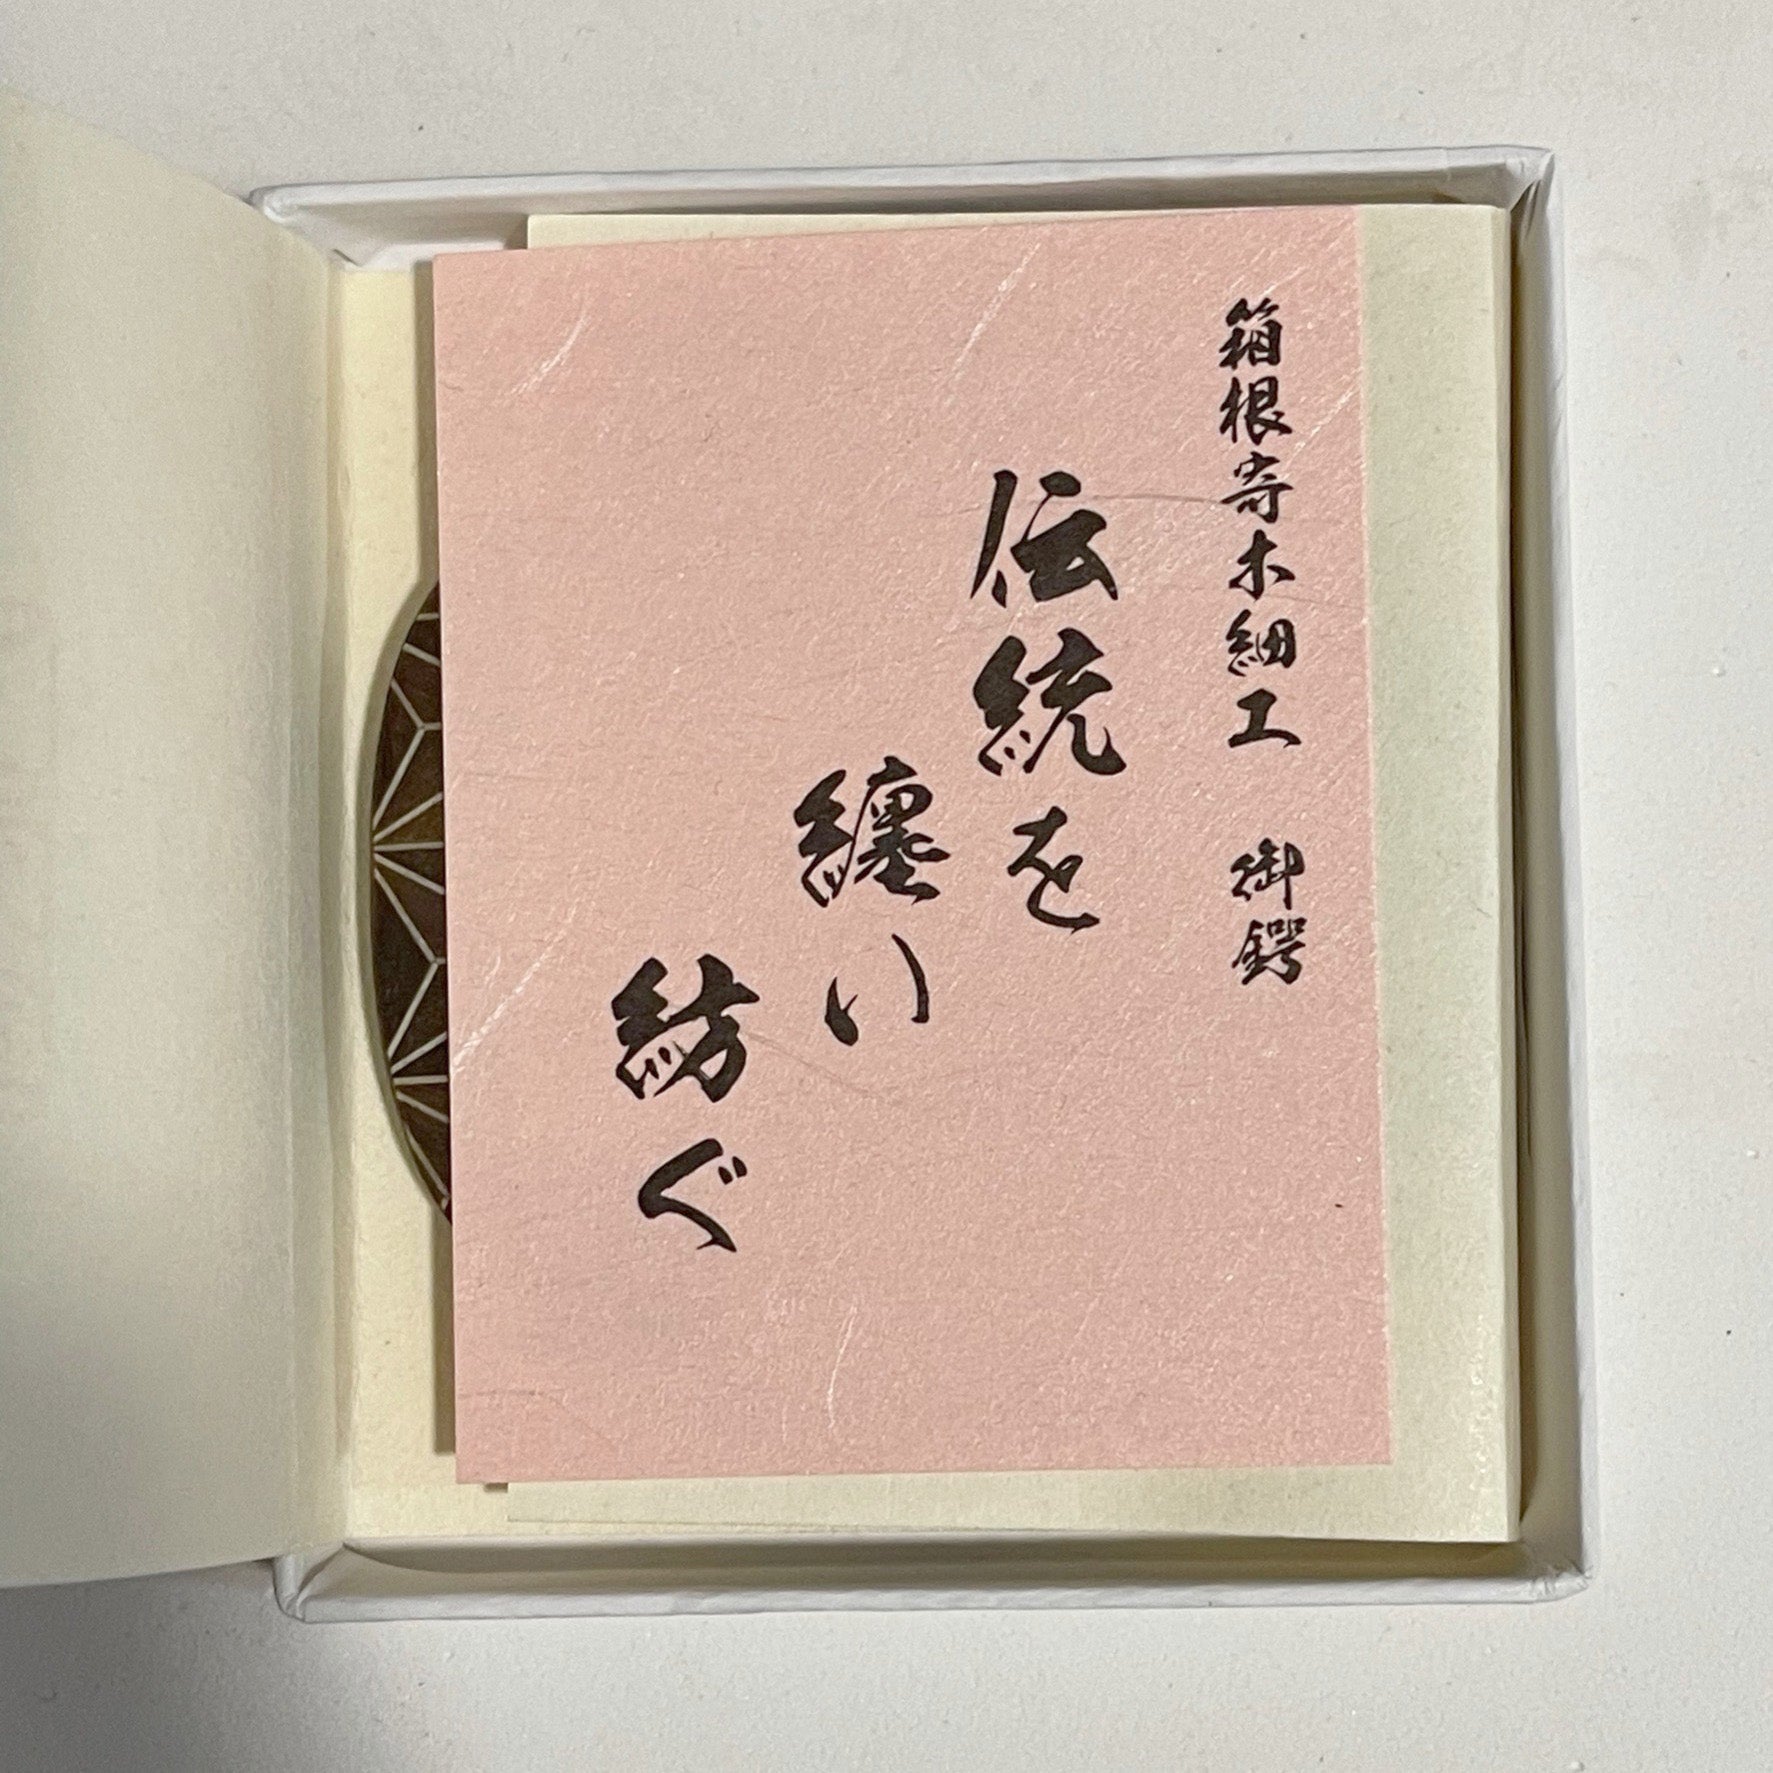 箱根寄木細工　御鍔
伝統を
纏い
紡ぐ